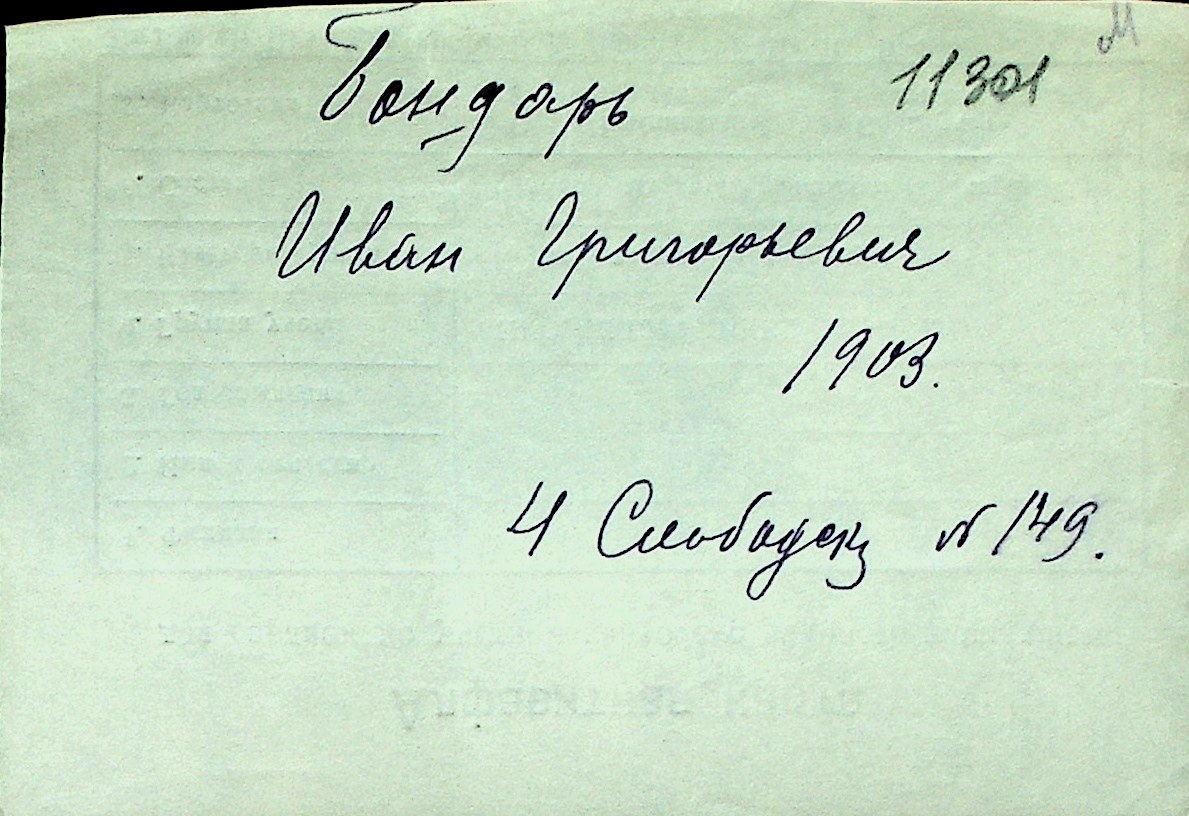 М
Бондарь 11301
Иван Григорьевич
1903.
4 Слободск № 149.